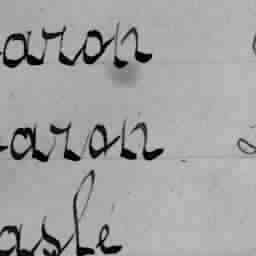 aron
aron
aslé